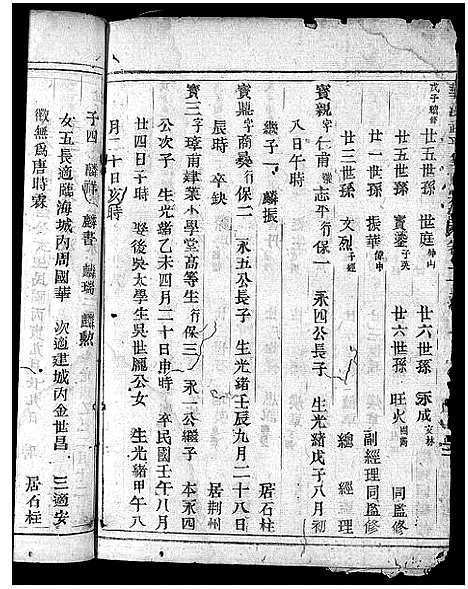 戊子續修
廿五世孫 世庭 仲山 廿六世孫 承成 安林
廿五世孫 寶鎏 子英 廿六世孫 旺火 同監修
廿四世孫 振華 偉中 副經理同監修
廿三世孫 文烈 子經 總經監理
寶親 字仁甫 號志平 行保一 永四公長子 生光緒戊子八月初
八日午時 居石柱
繼子一 麟振
寶鼎 字商彝 行保二 永五公長子 生光緒壬辰九月二十八日
辰時 卒缺 居荆州
寶三 字璋甫 肄業小學堂高等生 行保三 永一公繼子 本永四
公次子 生光緒乙未四月二十日申時 卒民國壬午八月
廿四日子時 娶後吳太學生吳世龎公女 生光緒甲午八
月二十日亥時
子四 麟祥 麟書 麟瑞 麟勲
女五長適臨海城內周國華 次適建城內金世昌 三適安
徽無爲唐時霖 居石柱